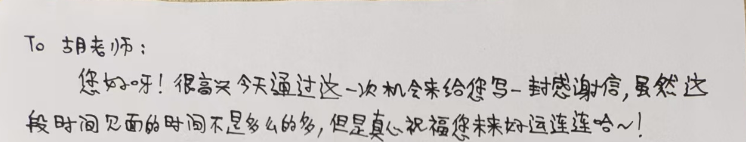 To 胡老师:
您好呀!很高兴今天通过这一次机会来给您写一封感谢信,虽然这
段时间见面的时间不是多么的多,但是真心祝福您未来好运连连哈~!